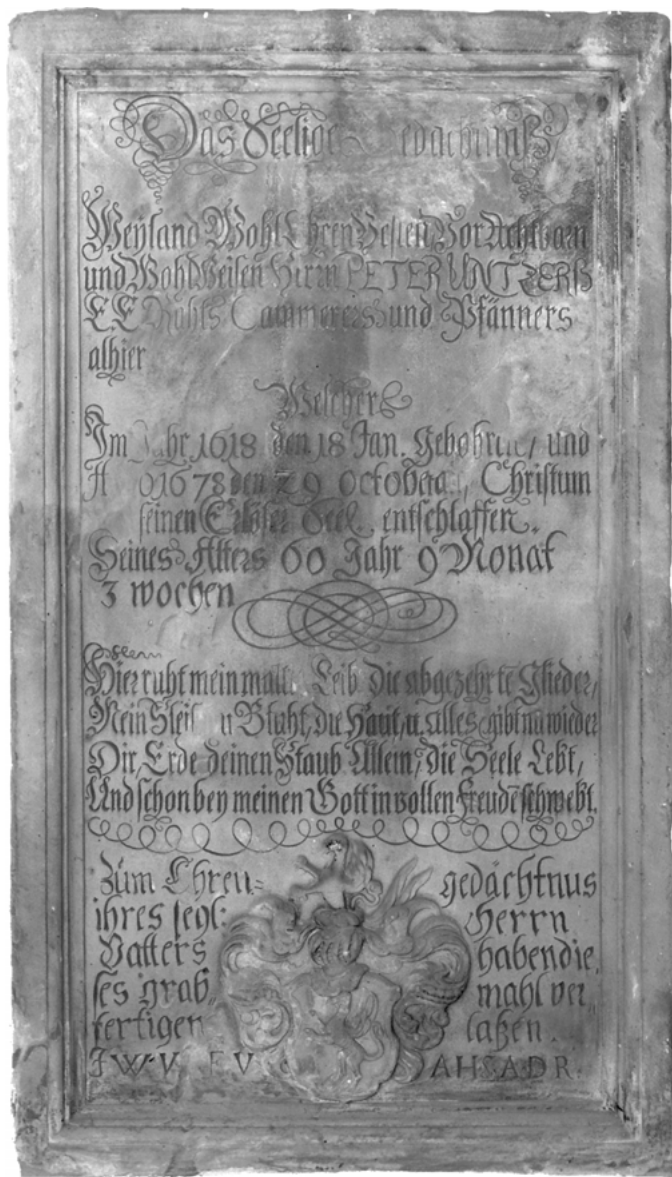 Das Seelige
Weyland Wohl Ehren Vesten Vor Achtbarn
und Wohl Weisen Herrn PETER UNTZERß
E E Rahts Cammerers und Pfänners
alhier
Welcher
Im Jahr 1618 den 18 Jan. Gebohren/ und
1678 den 29 October Christum
seinen Erlöser Seel. entschlaffen.
Seines Alters 60 Jahr 9 Monat
3 wochen
Hier ruht mein matter Leib Die abgezehrte Glieder,
Mein Fleisch u Bluht, die Haut, u. alles gibt nu wieder
Dir, Erde deinen Staub Allein, die Seele Lebt,
Und schon bey meinen Gott in vollen Freudē schwebt.
Zum Ehren= gedächtnus
ihres seel: Herrn
Vatters haben die,
ses grab,, mahl ver,
fertigen laßen.